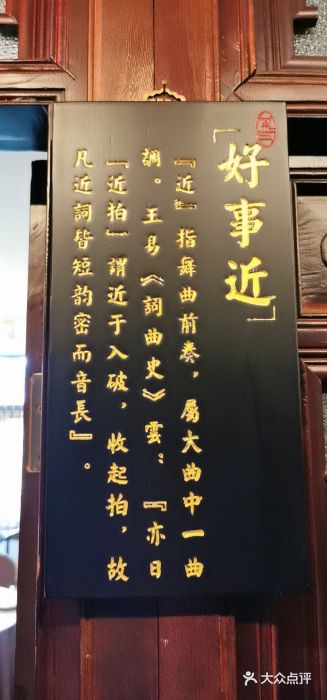 「好事近」
『近』指舞曲前奏，屬大曲中一曲
調。王易《詞曲史》雲：『亦日
「近拍」謂近于入破，收起拍，故
凡近詞皆短韵密而音長』。
大众点评